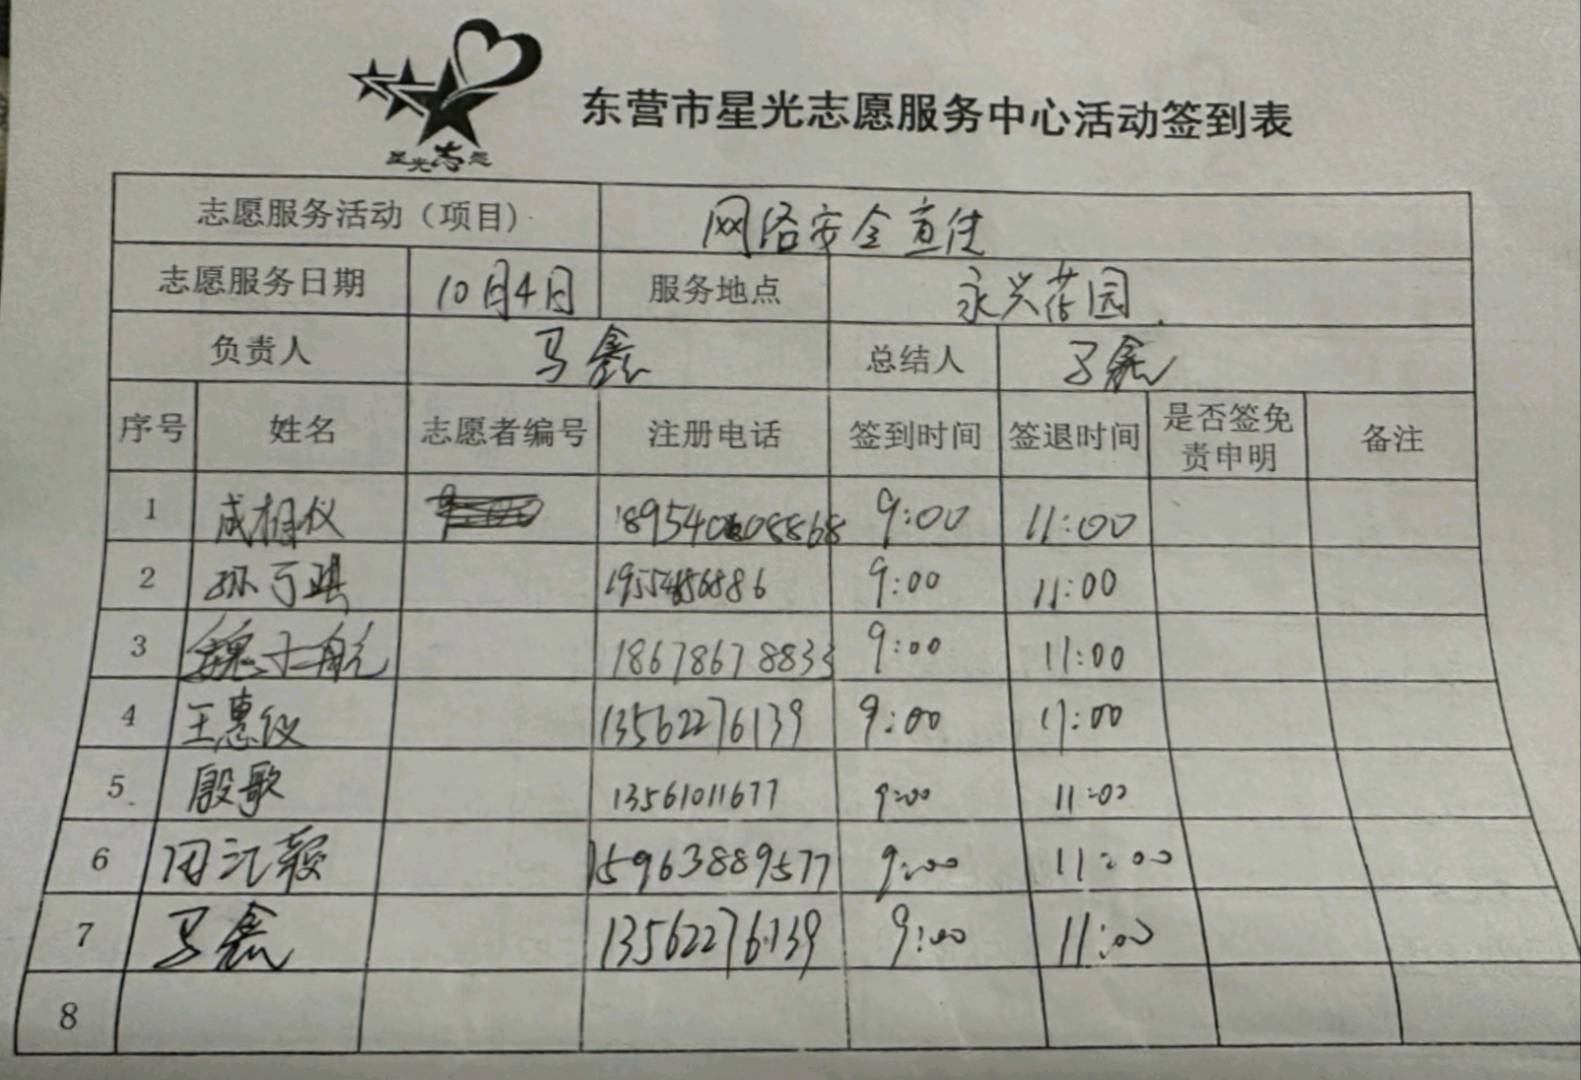 星光志愿
东营市星光志愿服务中心活动签到表
志愿服务活动（项目） 网络安全宣传
志愿服务日期 10月4日 服务地点 永兴花园
负责人 马鑫 总结人 马鑫
序号 姓名 志愿者编号 注册电话 签到时间 签退时间 是否签免责申明 备注
1 成相仪 9:00 11:00
2 9:00 11:00
3 18678678833 9:00 11:00
4 王惠仪 13562276139 9:00 11:00
5 殷歌 13561011677 9:00 11:00
6 15963889577 9:00 11:00
7 马鑫 13562276139 9:00 11:00
8